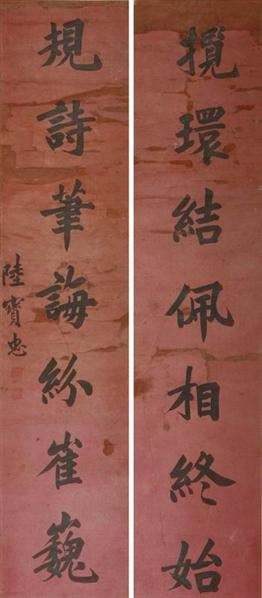 攬環結佩相終始
規詩筆誨紛崔巍
陸寶忠